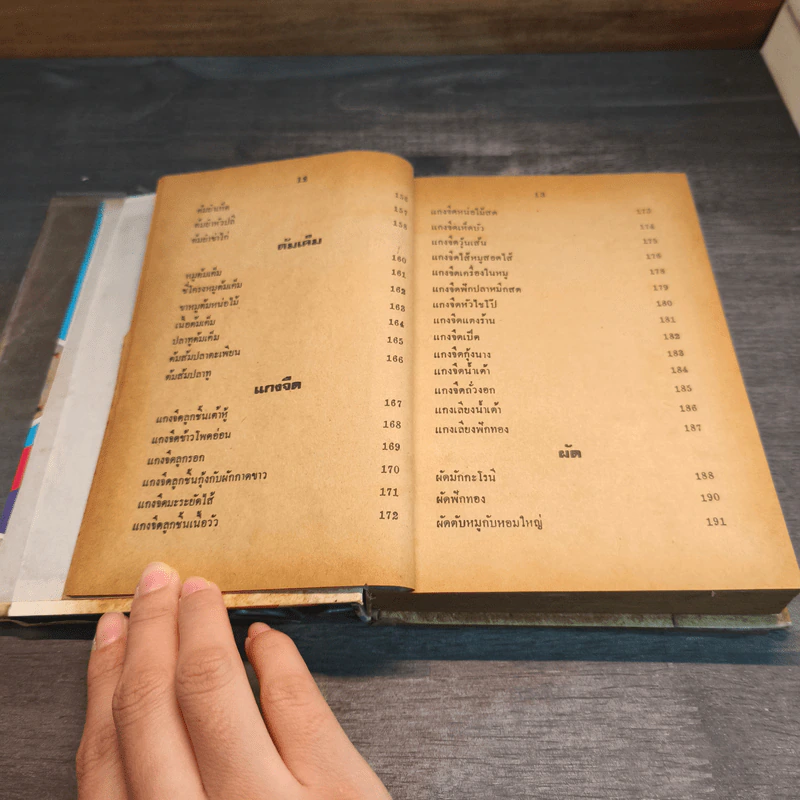 12
ต้มยำเห็ด 156
ต้มยำหัวปลี 157
ต้มยำขาไก่ 158
ต้มเค็ม
หมูต้มเค็ม 160
ซี่โครงหมูต้มเค็ม 161
ขาหมูต้มหน่อไม้ 162
เนื้อต้มเค็ม 163
ปลาทูต้มเค็ม 164
ต้มส้มปลาตะเพียน 165
ต้มส้มปลาทู 166
แกงจืด
แกงจืดลูกชิ้นเต้าหู้ 167
แกงจืดข้าวโพดอ่อน 168
แกงจืดลูกรอก 169
แกงจืดลูกชิ้นกุ้งกับผักกาดขาว 170
แกงจืดมะระยัดไส้ 171
แกงจืดลูกชิ้นเนื้อวัว 172
13
แกงจืดหน่อไม้สด 173
แกงจืดเห็ดบัว 174
แกงจืดวุ้นเส้น 175
แกงจืดไส้หมูสอดไส้ 176
แกงจืดเครื่องในหมู 178
แกงจืดฟักปลาหมึกสด 179
แกงจืดหัวไชโป๊ 180
แกงจืดแตงร้าน 181
แกงจืดเป็ด 182
แกงจืดกุ้งนาง 183
แกงจืดน้ำเต้า 184
แกงจืดถั่วงอก 185
แกงเลียงน้ำเต้า 186
แกงเลียงฟักทอง 187
ผัด
ผัดมักกะโรนี 188
ผัดฟักทอง 190
ผัดตับหมูกับหอมใหญ่ 191